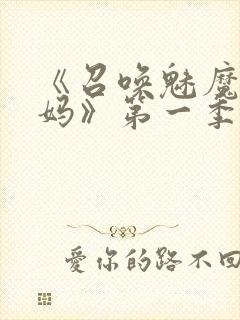 《召唤魅魔
妈》第一季
爱你的路不回